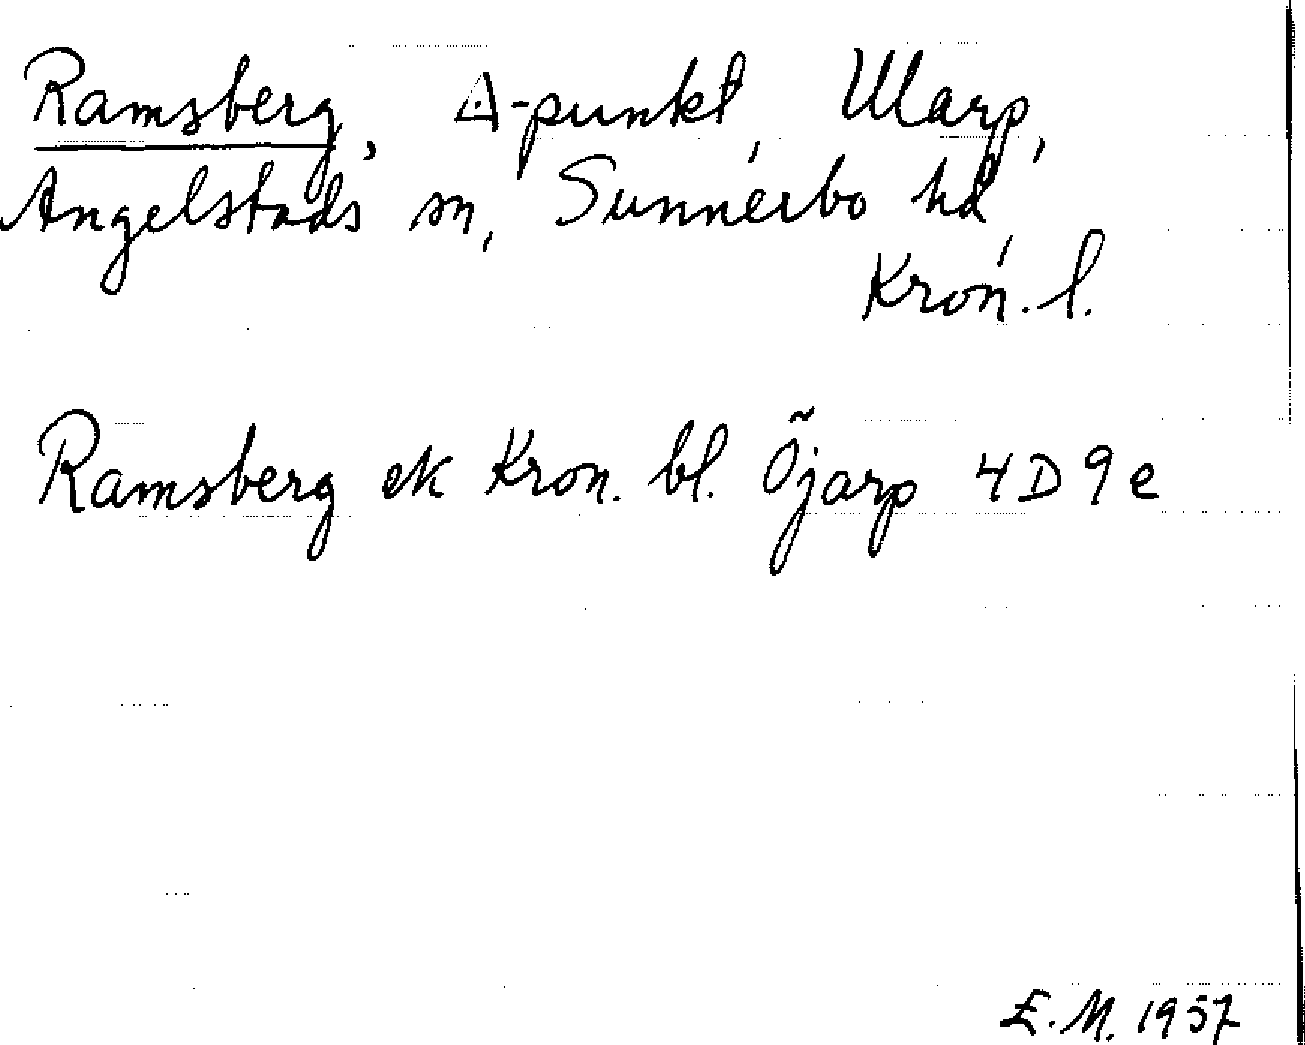 Ramsberg, △-punkt, Ularp,
Angelstads sn, Sunnerbo hd,
Kron. l.
Ramsberg ek Kron. bl. Öjarp 4D9e
E.M. 1957